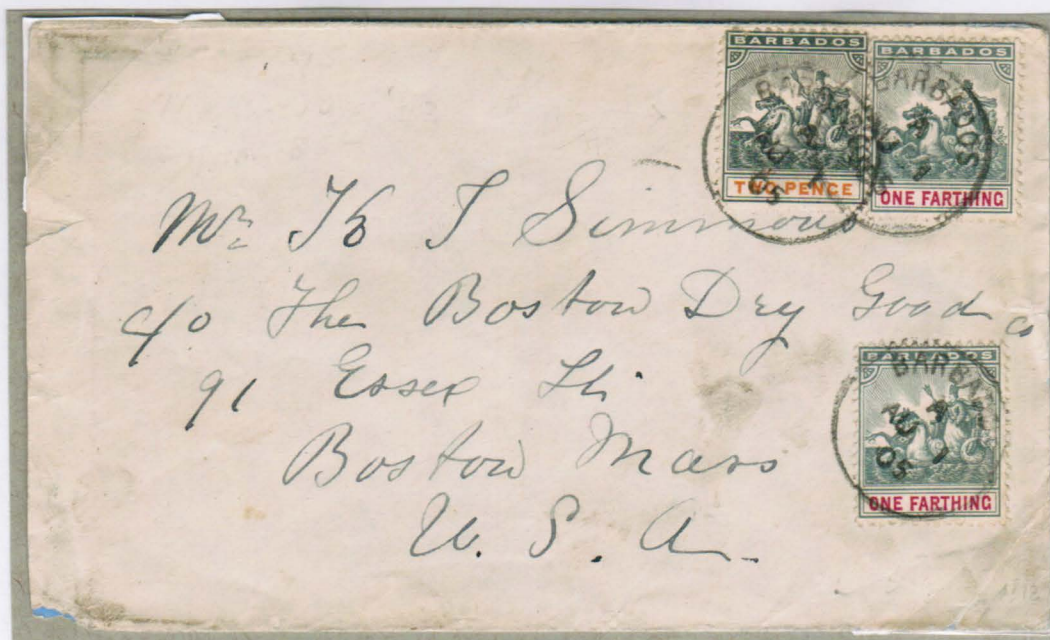 BARBADOS
TWO PENCE
BARBADOS
ONE FARTHING
BARBADOS
A
AU 1
05
BARBADOS
A
AU 1
05
Mr. H T Simmons
c/o The Boston Dry Good Co
91 Essex St.
Boston Mass
U. S. A.
BARBADOS
ONE FARTHING
BARBA
A
AU 1
05